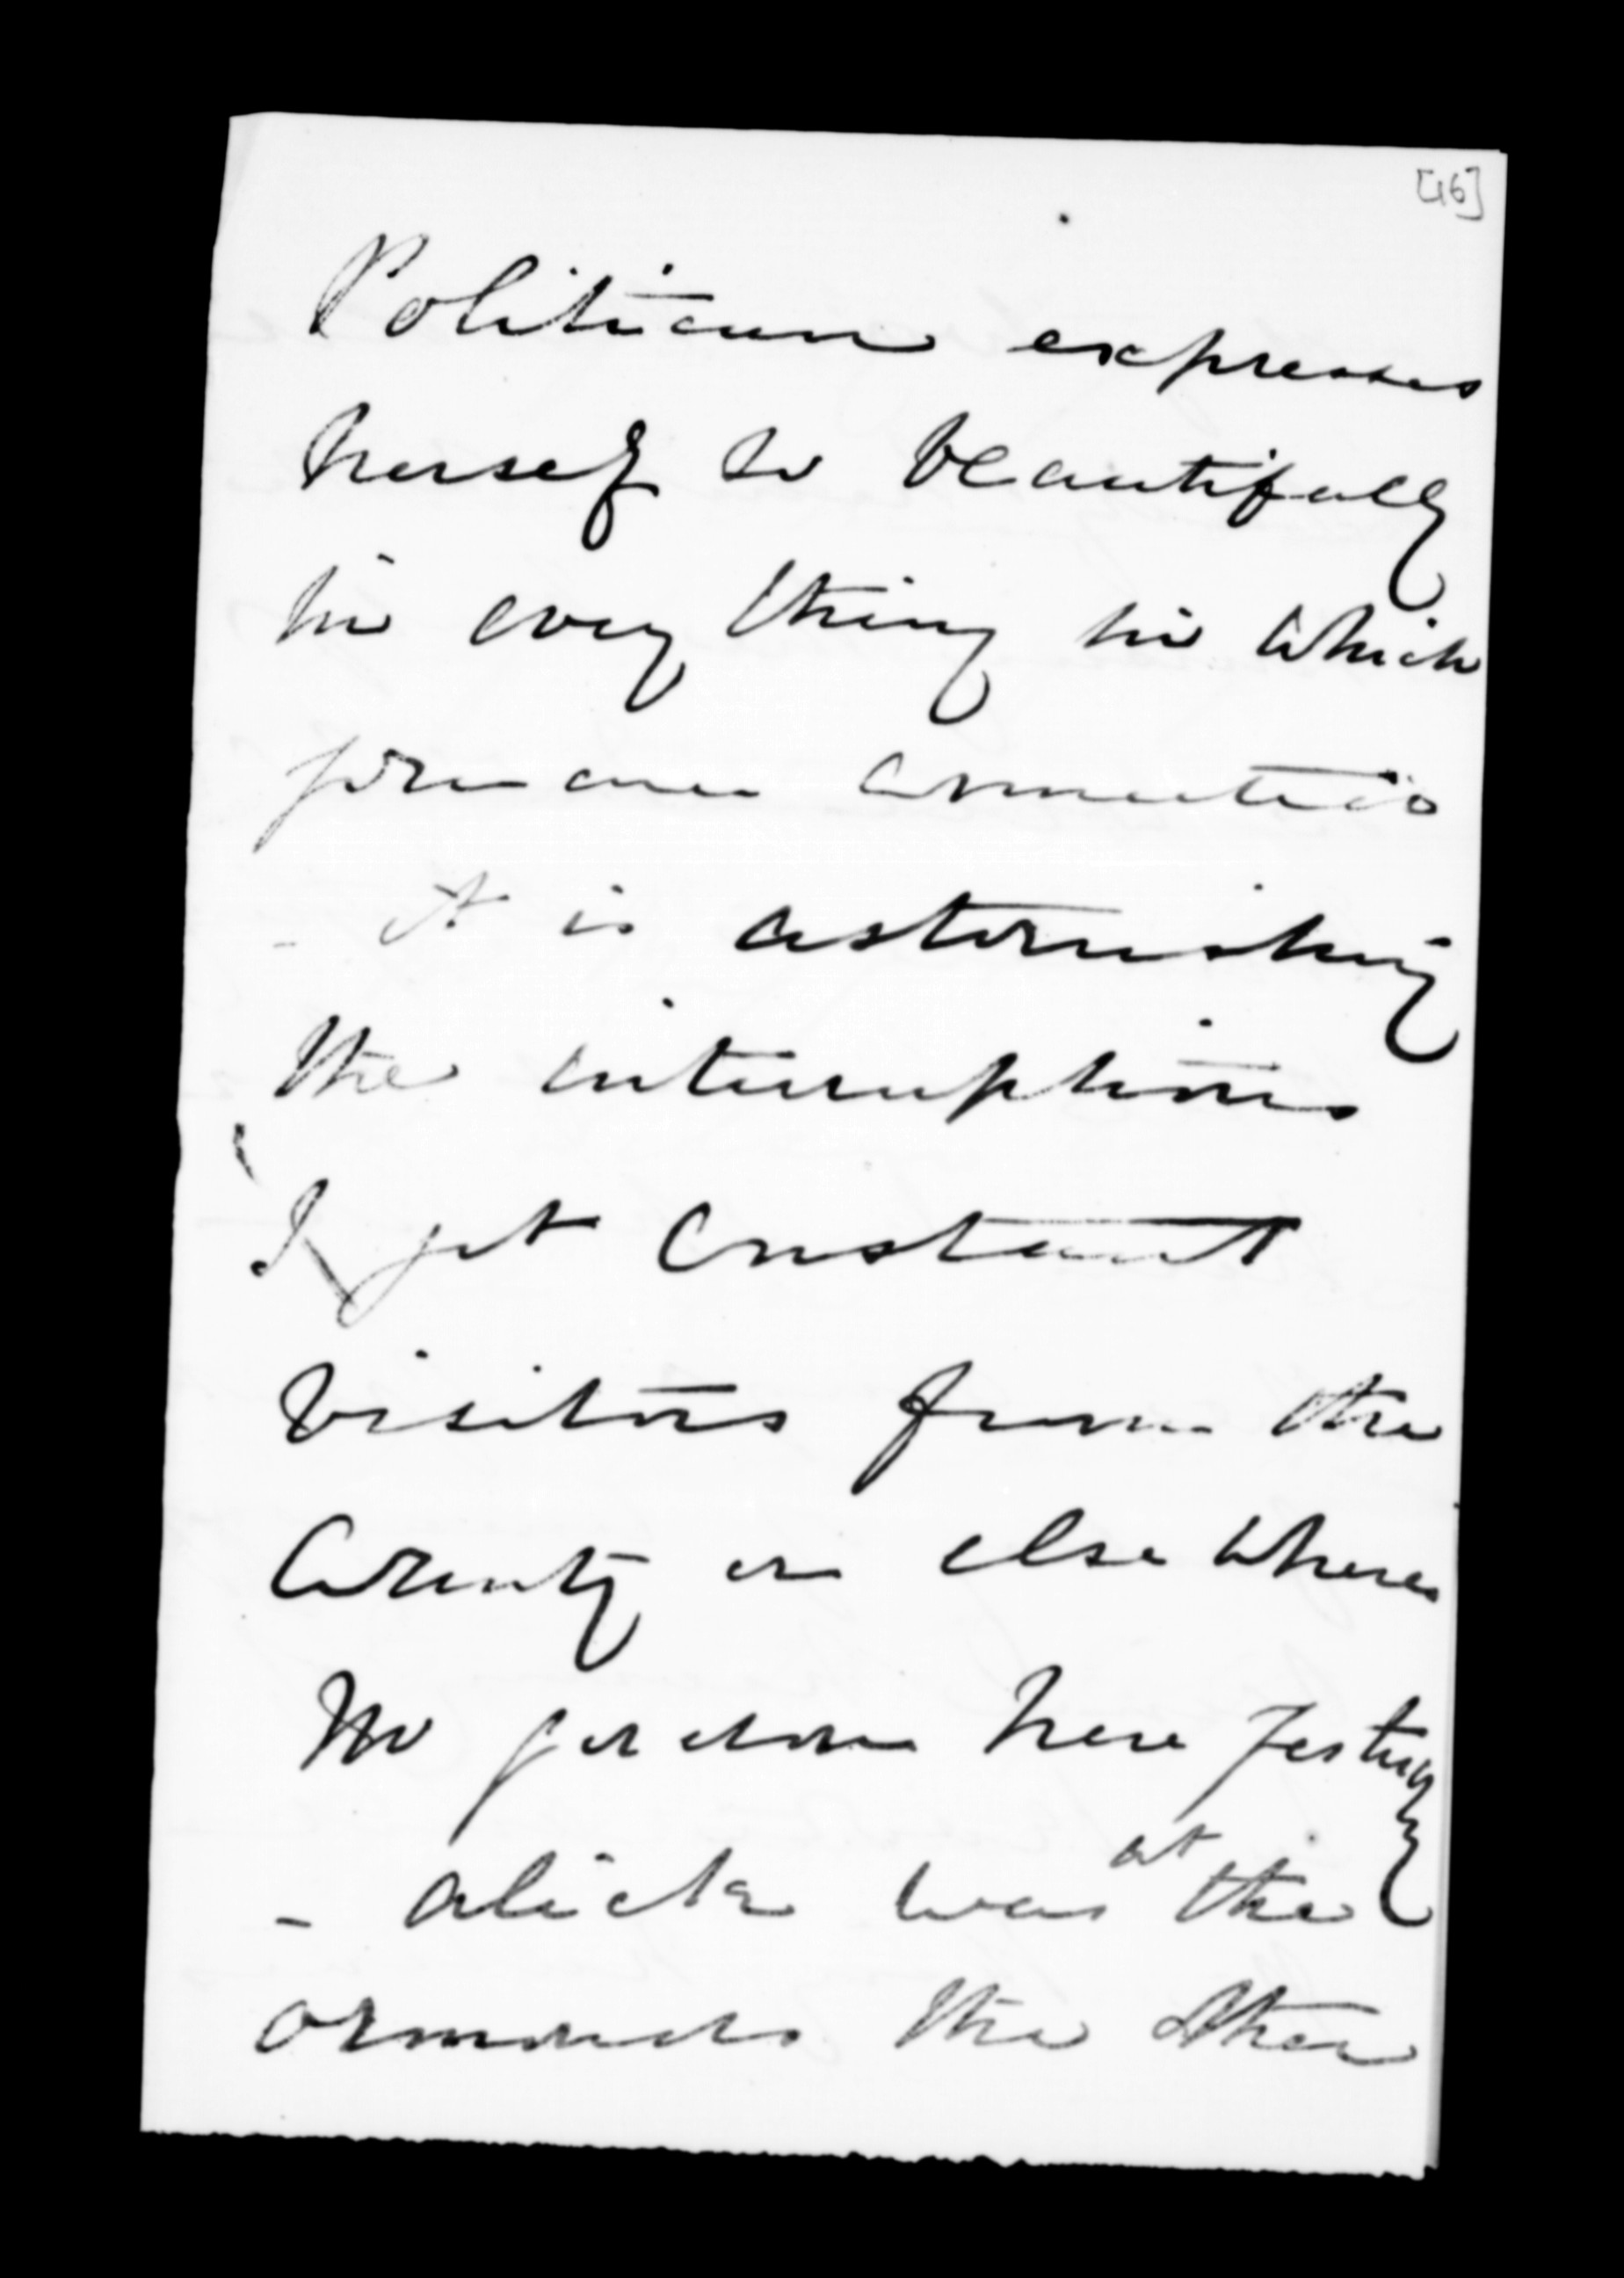 [16]
Politician expresses
herself so beautifully
in every thing in which
you are connected
- it is astonishing
the interruptions
I get Constant
visitors from the
County or else where
No person here yesty
- Alick was at the
Ormonds the other